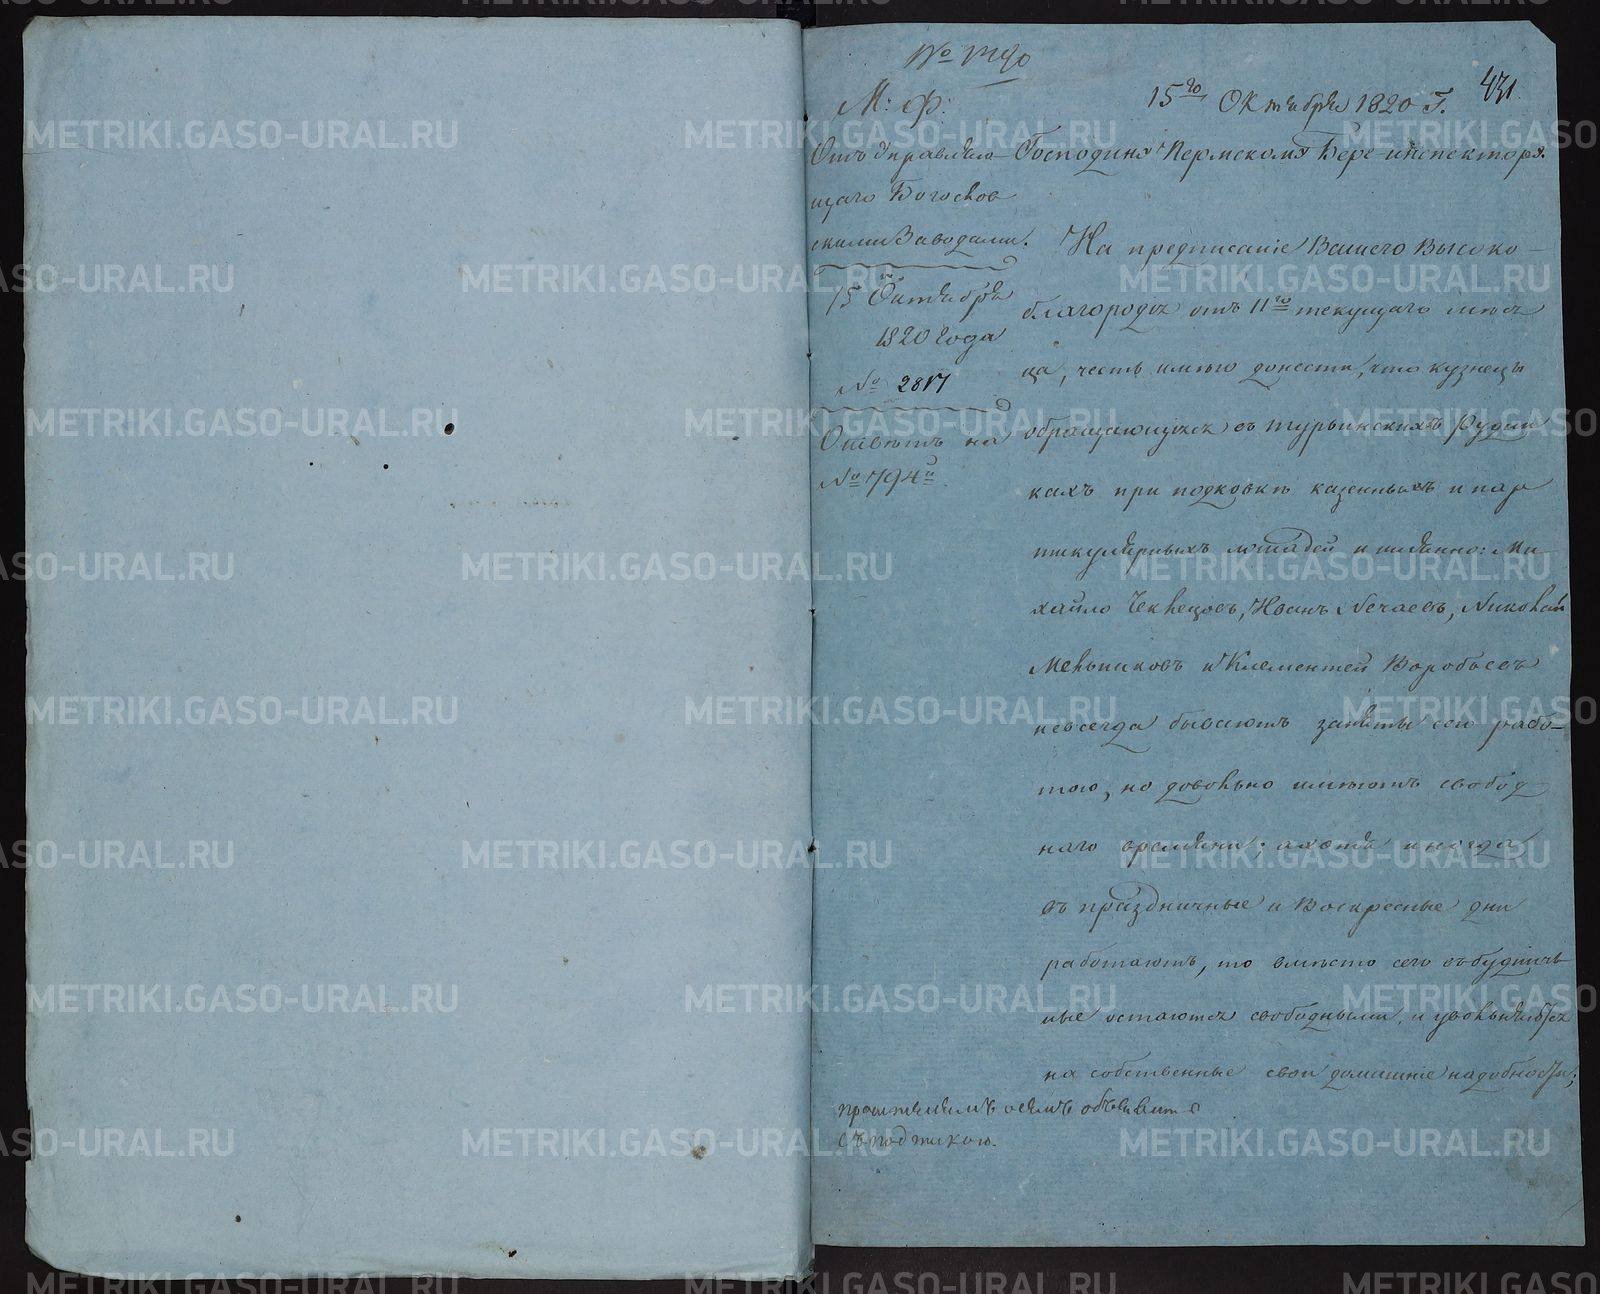 №
М: Ф:
15го Октября 1820 Г.
431.
Отъ Управляю-
щаго Богослов
скими Заводами.
15 Октября
1820 года
№ 2817
Ответъ на
№ 794й
Господину Пермскому Берг-инспектору.
На предписание Вашего Высоко-
благородия отъ 11го текущаго меся
ца, честь имею донести, что кузнецы
обращающиеся въ турьинскихъ Рудни
кахъ при подковке казенныхъ и пар
тикулярныхъ лошадей и имянно: Ми-
хайло Чеклецовъ, Иванъ Нечаевъ, Николай
Мельниковъ и Клементей Воробьевъ
невсегда бываютъ заняты сею рабо-
тою, но довольно имеютъ свобод
наго времяни; ахотя иногда
въ праздничные и Воскресные дни
работаютъ, то вместо сего въ будничь
ные остаются свободными, и увольняются
на собственные свои домашние надобности;
просителямъ осемъ объявить
съ подпискою.
METRIKI.GASO-URAL.RU